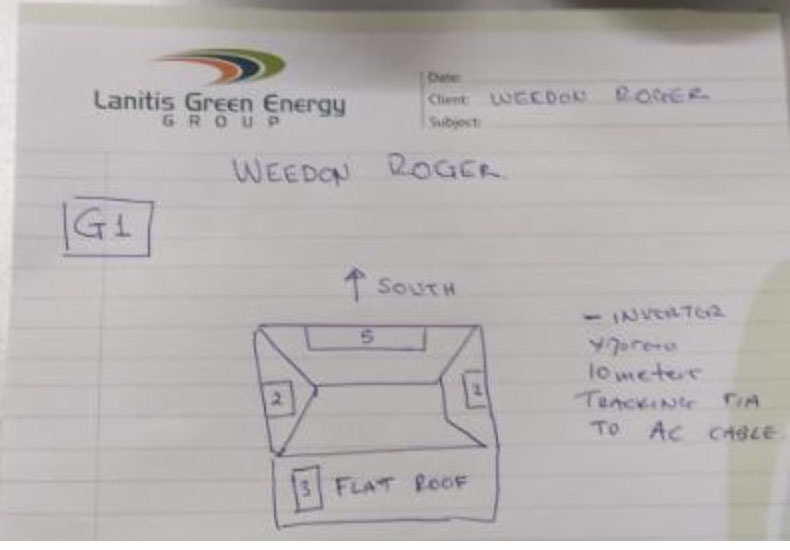 Lanitis Green Energy
GROUP
Date:
Client: WEEDON ROGER
Subject:
WEEDON ROGER
G1
↑ SOUTH
5
2
2
3 FLAT ROOF
- INVERTER
10 meters
TRACKING ΓΙΑ
TO AC CABLE